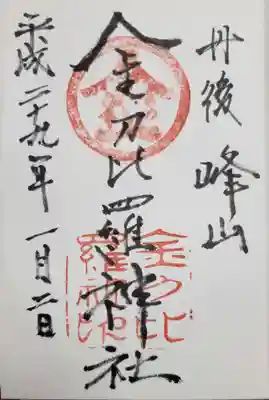 丹後 峰山
金刀比羅神社
平成二十九年 一月二日
金刀比
羅神社